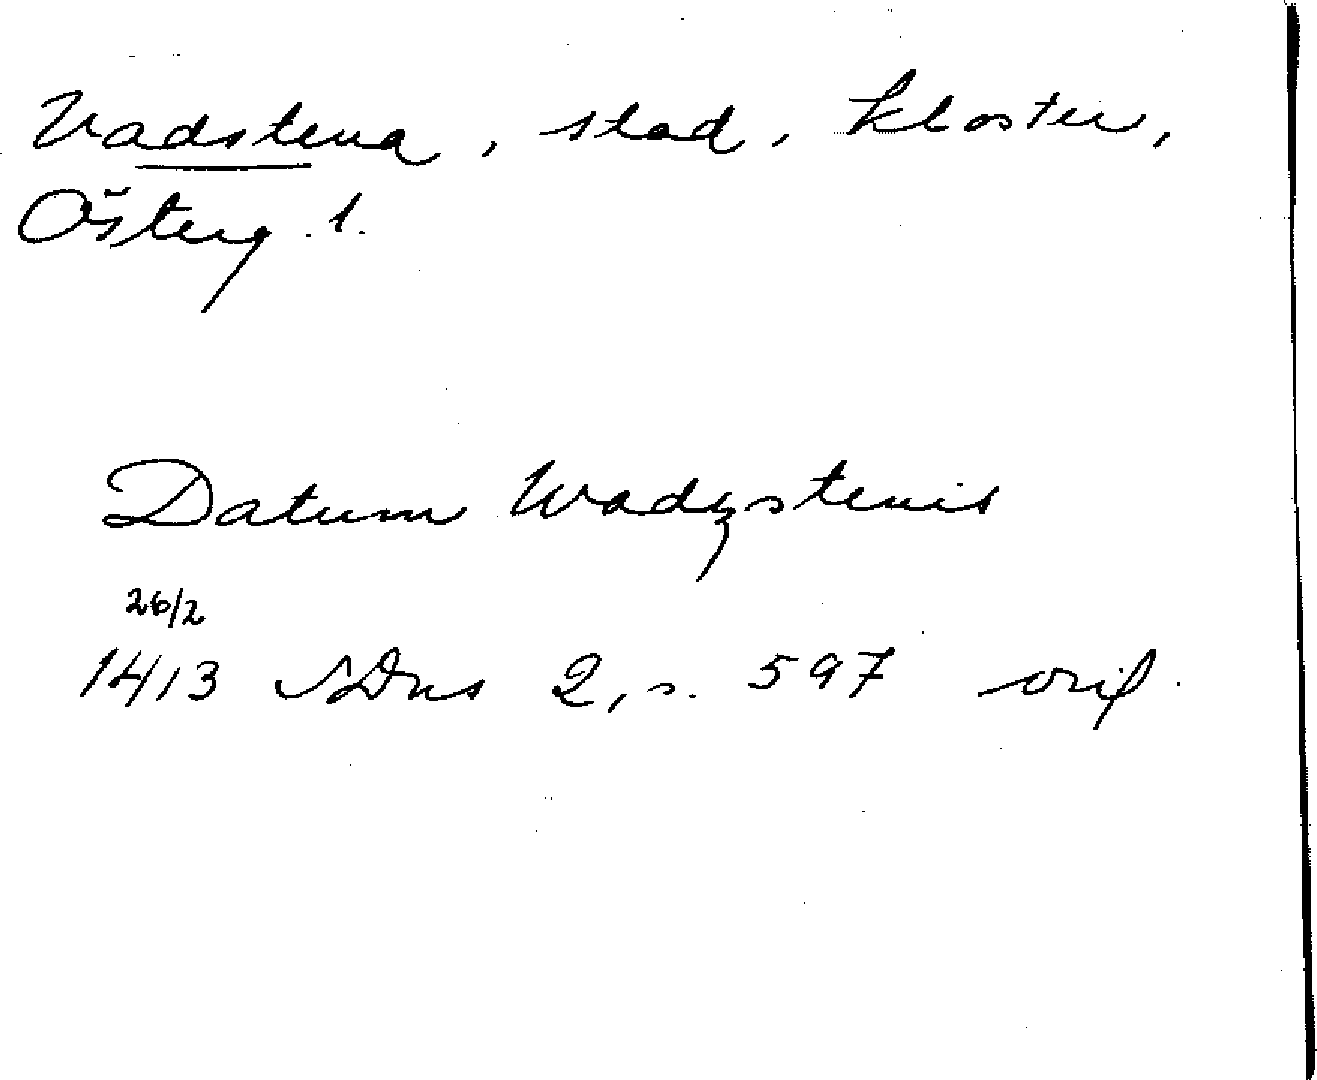 Vadstena, stad, kloster,
Österg. l.
Datum Wadzstenis
26/2
1413 SDns 2, s. 597 orig.